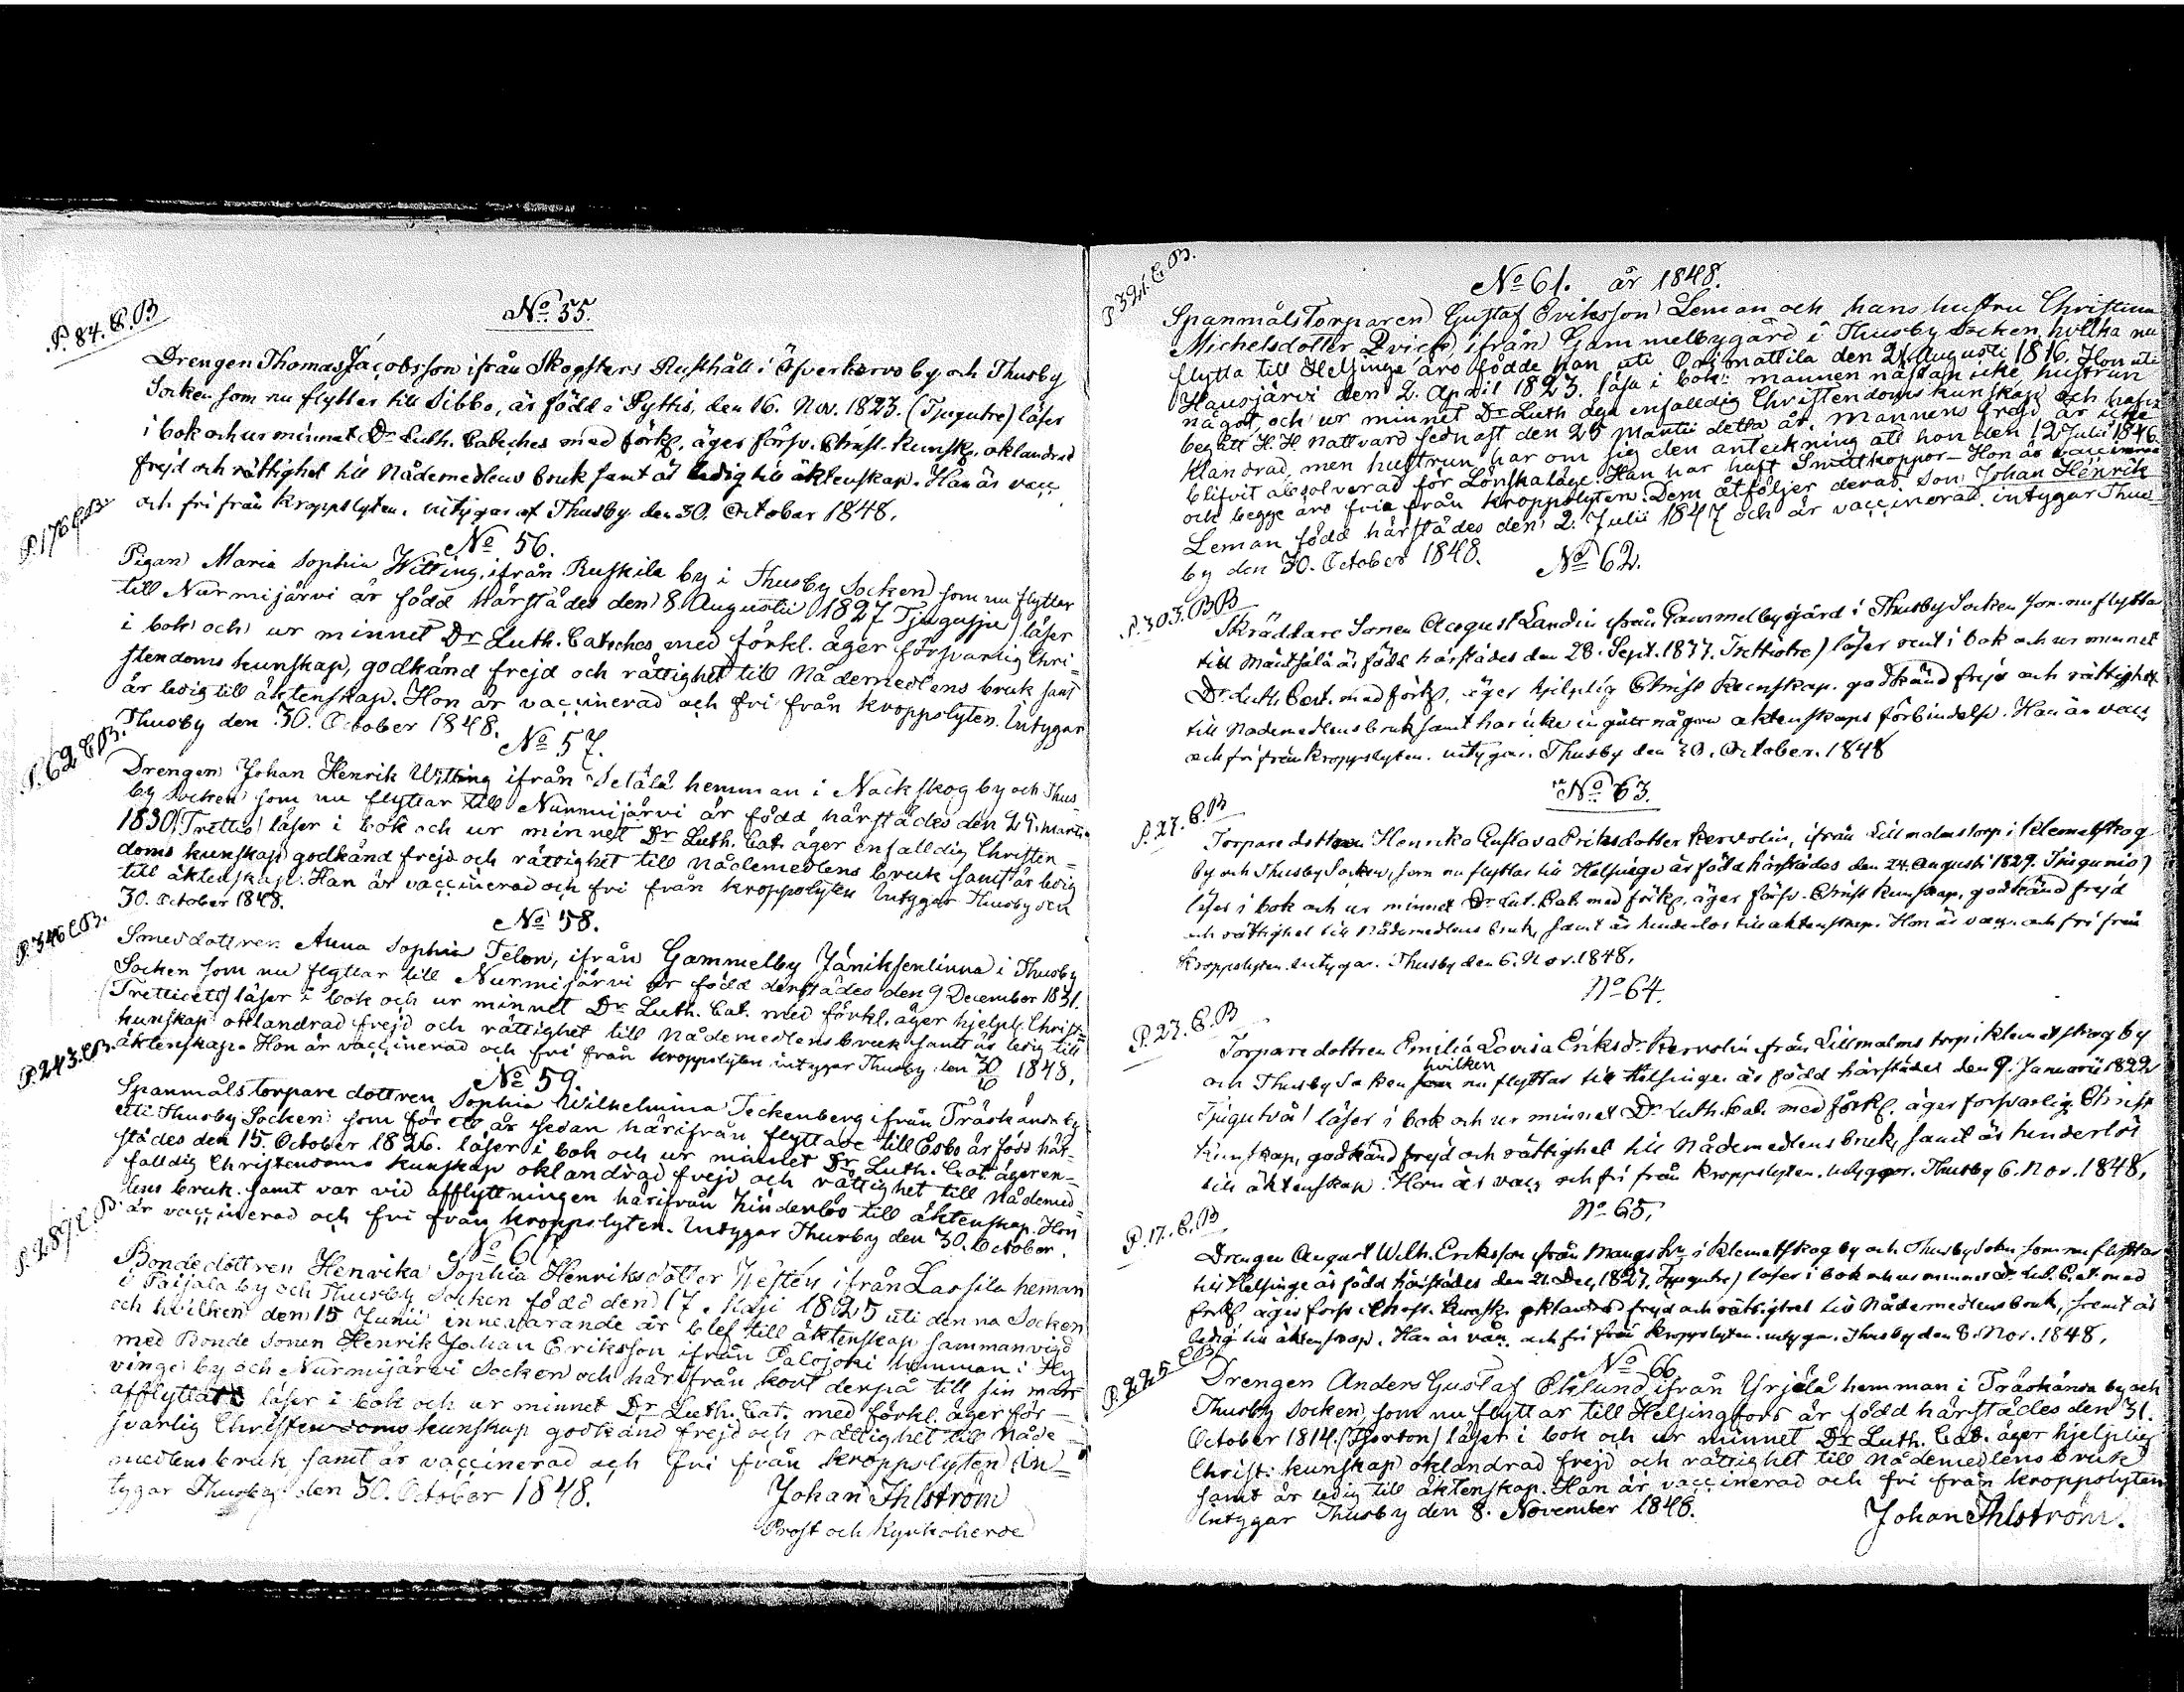 P. 84. C. B
No 55.
Drengen Thomas Jacobsson ifrån Skogsters Rusthåll i Öfverkervo by och Thusby
Socken som nu flyttar till Sibbo, är född i Pyttis, den 16. Nov. 1823. (Tjugutre) läser
i bok och ur minnet Dr Luth. Cateches med förkl. äger försv. Christ. kunsk. oklandrad
frejd och rättighet till Nådemedlens bruk samt är ledig till äktenskap. Han är vacc
och fri från kroppslyten. intygar af Thusby den 30. October 1848.
P. 176 C. B.
No 56.
Pigan Maria Sophia Witting, ifrån Ruskila by i Thusby Socken som nu flyttar
till Nurmijärvi är född härstädes den 8 Augustii 1827 Tjugusju) läser
i bok och ur minnet Dr Luth. Cateches med förkl. äger försvarlig Chri-
stendoms kunskap, godkänd frejd och rättighet till Nådemedlens bruk samt
är ledig till äktenskap. Hon är vaccinerad och fri från kroppslyten. Intygar
Thusby den 30. October 1848.
P. 62 C. B.
No 57.
Drengen Johan Henrik Witting ifrån Setälä hemman i Nackskog by och Thus-
by Socken som nu flyttar till Nurmijärvi är född härstädes den 29. Martii
1830 (Trettio) läser i bok och ur minnet Dr Luth. Cat. äger enfalldig Christen=
doms kunskap godkänd frejd och rättighet till nådemedlens bruk samt är ledig
till äktenskap. Han är vaccinerad och fri från kroppslyten Intygar Thusby den
30. October 1848.
P. 346 C. B.
No 58.
Smesdottren Anna Sophia Felon, ifrån Gammelby Jäniksenlinna i Thusby
Socken som nu flyttar till Nurmijärvi är född derstädes den 9 December 1831.
(Trettioett) läser i bok och ur minnet Dr Luth. Cat. med förkl. äger hjelpl. Christ=
kunskap oklandrad frejd och rättighet till Nådemedlens bruk samt är ledig till
äktenskap. Hon är vaccinerad och fri från kroppslyten intygar Thusby den 30/10 1848.
P. 243. C. B.
No 59.
Spanmålstorpare dottren Sophia Wilhelmina Teckenberg ifrån Träskända by
uti Thusby Socken som för ett år sedan härifrån flyttade till Esbo är född här-
städes den 15. October 1826. läser i bok och ur minnet Dr Luth. Cat. äger en-
falldig Christendoms kunskap oklandrad frejd och rättighet till Nådemed=
lens bruk. samt var vid afflyttningen härifrån hinderlös till äktenskap. Hon
är vaccinerad och fri från kroppslyten. Intygar Thusby den 30. October.
P. 289 C. B.
No 60.
Bondedottren Henrika Sophia Henriksdotter ifrån Lassila heman
i Paijala by och Thusby Socken född den 17. Maji 1825 uti denna Socken
och hvilken den 15 Junii innevarande år blef till äktenskap sammanvigd
med Bonde Sonen Henrik Johan Eriksson ifrån Palojoki hemman i Hy
vinge by och Nurmijärvi Socken och härifrån kort derpå till sin man
afflyttat läser i bok och ur minnet Dr Luth. Cat. med förkl. äger för-
svarlig Christendoms kunskap godkänd frejd och rättighet till Nåde-
medlens bruk, samt är vaccinerad och fri från kroppslyten In-
tygar Thusby den 30. October 1848.
Johan Ihlström
Prost och Kyrkoherde
P 321. C. B.
No 61. år 1848.
Spanmålstorparen Gustaf Eriksson Leman och hans hustru Christina
Michelsdotter Qvick, ifrån Gammelbygård i Thusby Socken hvilka nu
flytta till Helsinge äro födde han uti Orimattila den 21 Augusti 1816. Hon uti
Hausjärvi den 2. April 1823. läsa i bok: mannen nästan icke hustrun
något, och ur minnet Dr Luth äga enfalldig Christendoms kunskap och hafva
begått H. H. Nattvard sednast den 25 Martii detta år. Mannens frejd är icke
klandrad, men hustrun har om sig den anteckning att hon den 12 Julii 1846.
blifvit absolverad för Lönskaläge. Han har haft Smittkoppor - Hon är vaccinerad
och begge äro fria från kroppslyten. Dem åtföljer deras son Johan Henrik
Leman född härstädes den 2. Julii 1847 och är vaccinerad. intygar Thus-
by den 30. October 1848.
P. 303. B B
No 62.
Skräddare Sonen August Landin ifrån Gammelbygård i Thusby Socken som nu flytta
till Mäntsälä är född härstädes den 28. Sept. 1833. Trettiotre) läser rent i bok och ur minnet
Dr Luth Cat. med förkl. äger hjelplig Christ Kunskap. godkänd frejd och rättighet
till Nådemedlens bruk samt har icke ingått några äktenskaps förbindelse. Han är vacc
och fri från kroppslyten. intygar. Thusby den 30. October. 1848
No 63.
P. 27. C. B
Torpare dottren Henrika Gustava Eriksdotter Kervolin, ifrån Lillmalms torp i Klemetskog
by och Thusby Socken, som nu flyttar till Helsinge är född härstädes den 24. Augusti 1829. Tjugunio)
läser i bok och ur minnet Dr Lut. Cat. med förkl. äger försv. Christ kunskap, godkänd frejd
och rättighet till Nådemedlens bruk, samt är hinderlös till äktenskap. Hon är vacc. och fri från
kroppslyten. Intygar. Thusby den 6. Nov. 1848.
No 64.
P. 27. C. B
Torpare dottren Emilia Lovisa Eriksdr. Kervolin ifrån Lillmalms torp i Klemetskog by
och Thusby Socken hvilken nu flyttar till Helsinge är född härstädes den 9. Januarii 1822
Tjugutvå) läser i bok och ur minnet Dr Luth. Cat. med förkl. äger försvarlig Christ
kunskap, godkänd frejd och rättighet till Nådemedlens bruk, samt är hinderlös
till äktenskap. Hon är vacc och fri från kroppslyten. Intygar. Thusby 6. Nov. 1848.
No 65.
P. 17. C. B
Drengen August Wilh. Eriksson ifrån Mangs hn i Klemetskog by och Thusby Sokn som nu flyttar
till Helsinge är född härstädes den 21. Dec. 1827. läser i bok och ur minnet Dr Lut. Cat. med
förkl äger försv. Christ. kunsk. oklandrad frejd och rättighet till Nådemedlens bruk, samt är
ledig till äktenskap. Han är vacc. och fri från kroppslyten. intygar. Thusby den 8. Nov. 1848.
P. 225 C. B.
No 66
Drengen Anders Gustaf Öklund ifrån Yrjälä hemman i Träskända by och
Thusby Socken, som nu flyttar till Helsingfors är född härstädes den 31.
October 1814. (Fjorton) läser i bok och ur minnet Dr Luth. Cat. äger hjelplig
Christ: kunskap oklandrad frejd och rättighet till nådemedlens bruk
samt är ledig till äktenskap. Han är vaccinerad och fri från kroppslyten
Intygar Thusby den 8. November 1848.
Johan Ihlström.